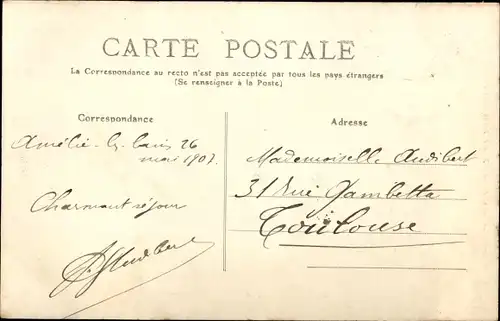 CARTE POSTALE
La Correspondance au recto n'est pas acceptée par tous les pays étrangers
(Se renseigner à la Poste)
Correspondance
Amélie-les-bains 26
mai 1907.
Charmant séjour
Adresse
Mademoiselle Audibert
31 Rue Gambetta
Toulouse